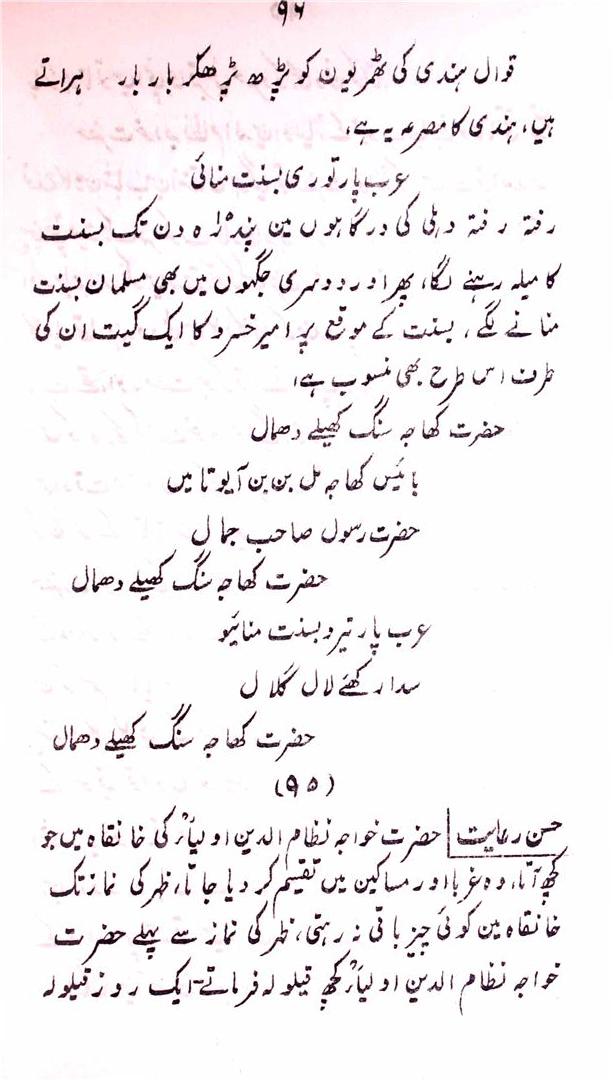 ۹۶
قوال ہندی کی ٹھمریون کو پڑھ پڑھکر بار بار ہراتے
ہیں، ہندی کا مصرعہ یہ ہے،
عرب یار توری بسنت منائی
رفتہ رفتہ دہلی کی درگاہوں مین پندڑہ دن تک بسنت
کا میلہ رہنے لگا، پھر اور دوسری جگہوں میں بھی مسلمان بسنت
منانے لگے، بسنت کے موقع پر امیر خسرو کا ایک گیت ان کی
طرف اس طرح بھی منسوب ہے،
حضرت کھاجہ سنگ کھیلے دھمال
بائیس کھاجہ مل بن بن آیو تا میں
حضرت رسول صاحب جمال
حضرت کھاجہ سنگ کھیلے دھمال
عرب یار تیرو بسنت منائیو
سدا رکھئے لال گلال
حضرت کھاجہ سنگ کھیلے دھمال
(۹۵)
حسن رعایت حضرت خواجہ نظام الدین اولیاؒ کی خانقاہ میں جو
کچھ آتا، وہ غربا اور مساکین میں تقسیم کر دیا جاتا، ظہر کی نماز تک
خانقاہ مین کوئی چیز باقی نہ رہتی، ظہر کی نماز سے پہلے حضرت
خواجہ نظام الدین اولیاؒ کچھ قیلولہ فرماتے۔ ایک روز قیلولہ